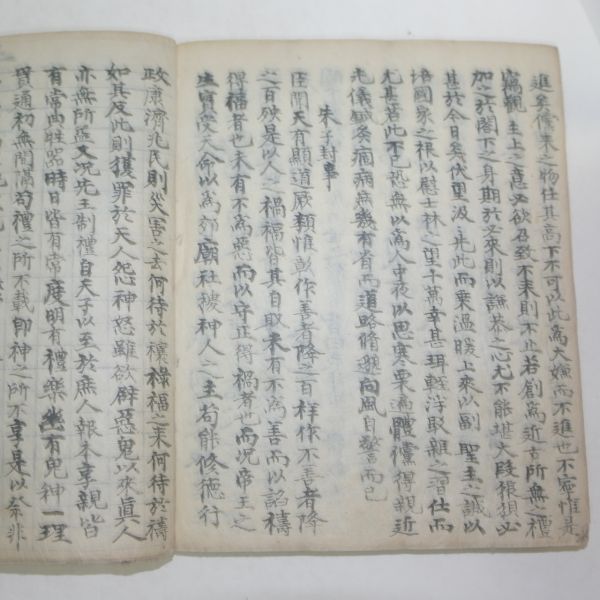 進矣儻來之物仕其高下不可以此爲大嫌而不進也不寧惟是
竊觀 主上之意必欲召致不來則不止若創爲近古所無之禮
加之於閤下之身期於必來則以謙恭之心尤不能堪大段狼狽必
甚於今日矣伏望汲汲此而乘溫暖上來以副 聖主之誠以
培國家之根以慰士林之望千萬幸甚珥輕浮取雖之習仕而
尤甚若此不已恐無以爲人中夜以思寒粟滿體儻得親近
光儀鍼灸病痛無幾有而道路脩逈向風自嗟而已
朱子封事
臣聞天有顯道厥類惟彰作善者降之百祥作不善者降
之百殃是以人之禍福皆其自取未有不爲善而以諂禱
得福者也未有不爲惡而以守正得禍者也而況帝王之
生實受天命以爲郊廟社稷神人之主苟能修德行
政康濟兆民則災害之去何待於禳祿福之來何待於禱
如其反此則獲罪於天人怨神怒雖欲辟惡鬼以來眞人
亦無所益又況先王制禮自天子以至於庶人報本享親皆
有常典牲器時日皆有常度明有禮樂幽有鬼神一理
貫通初無間隔苟禮之所不載卽神之所不享是以祭非